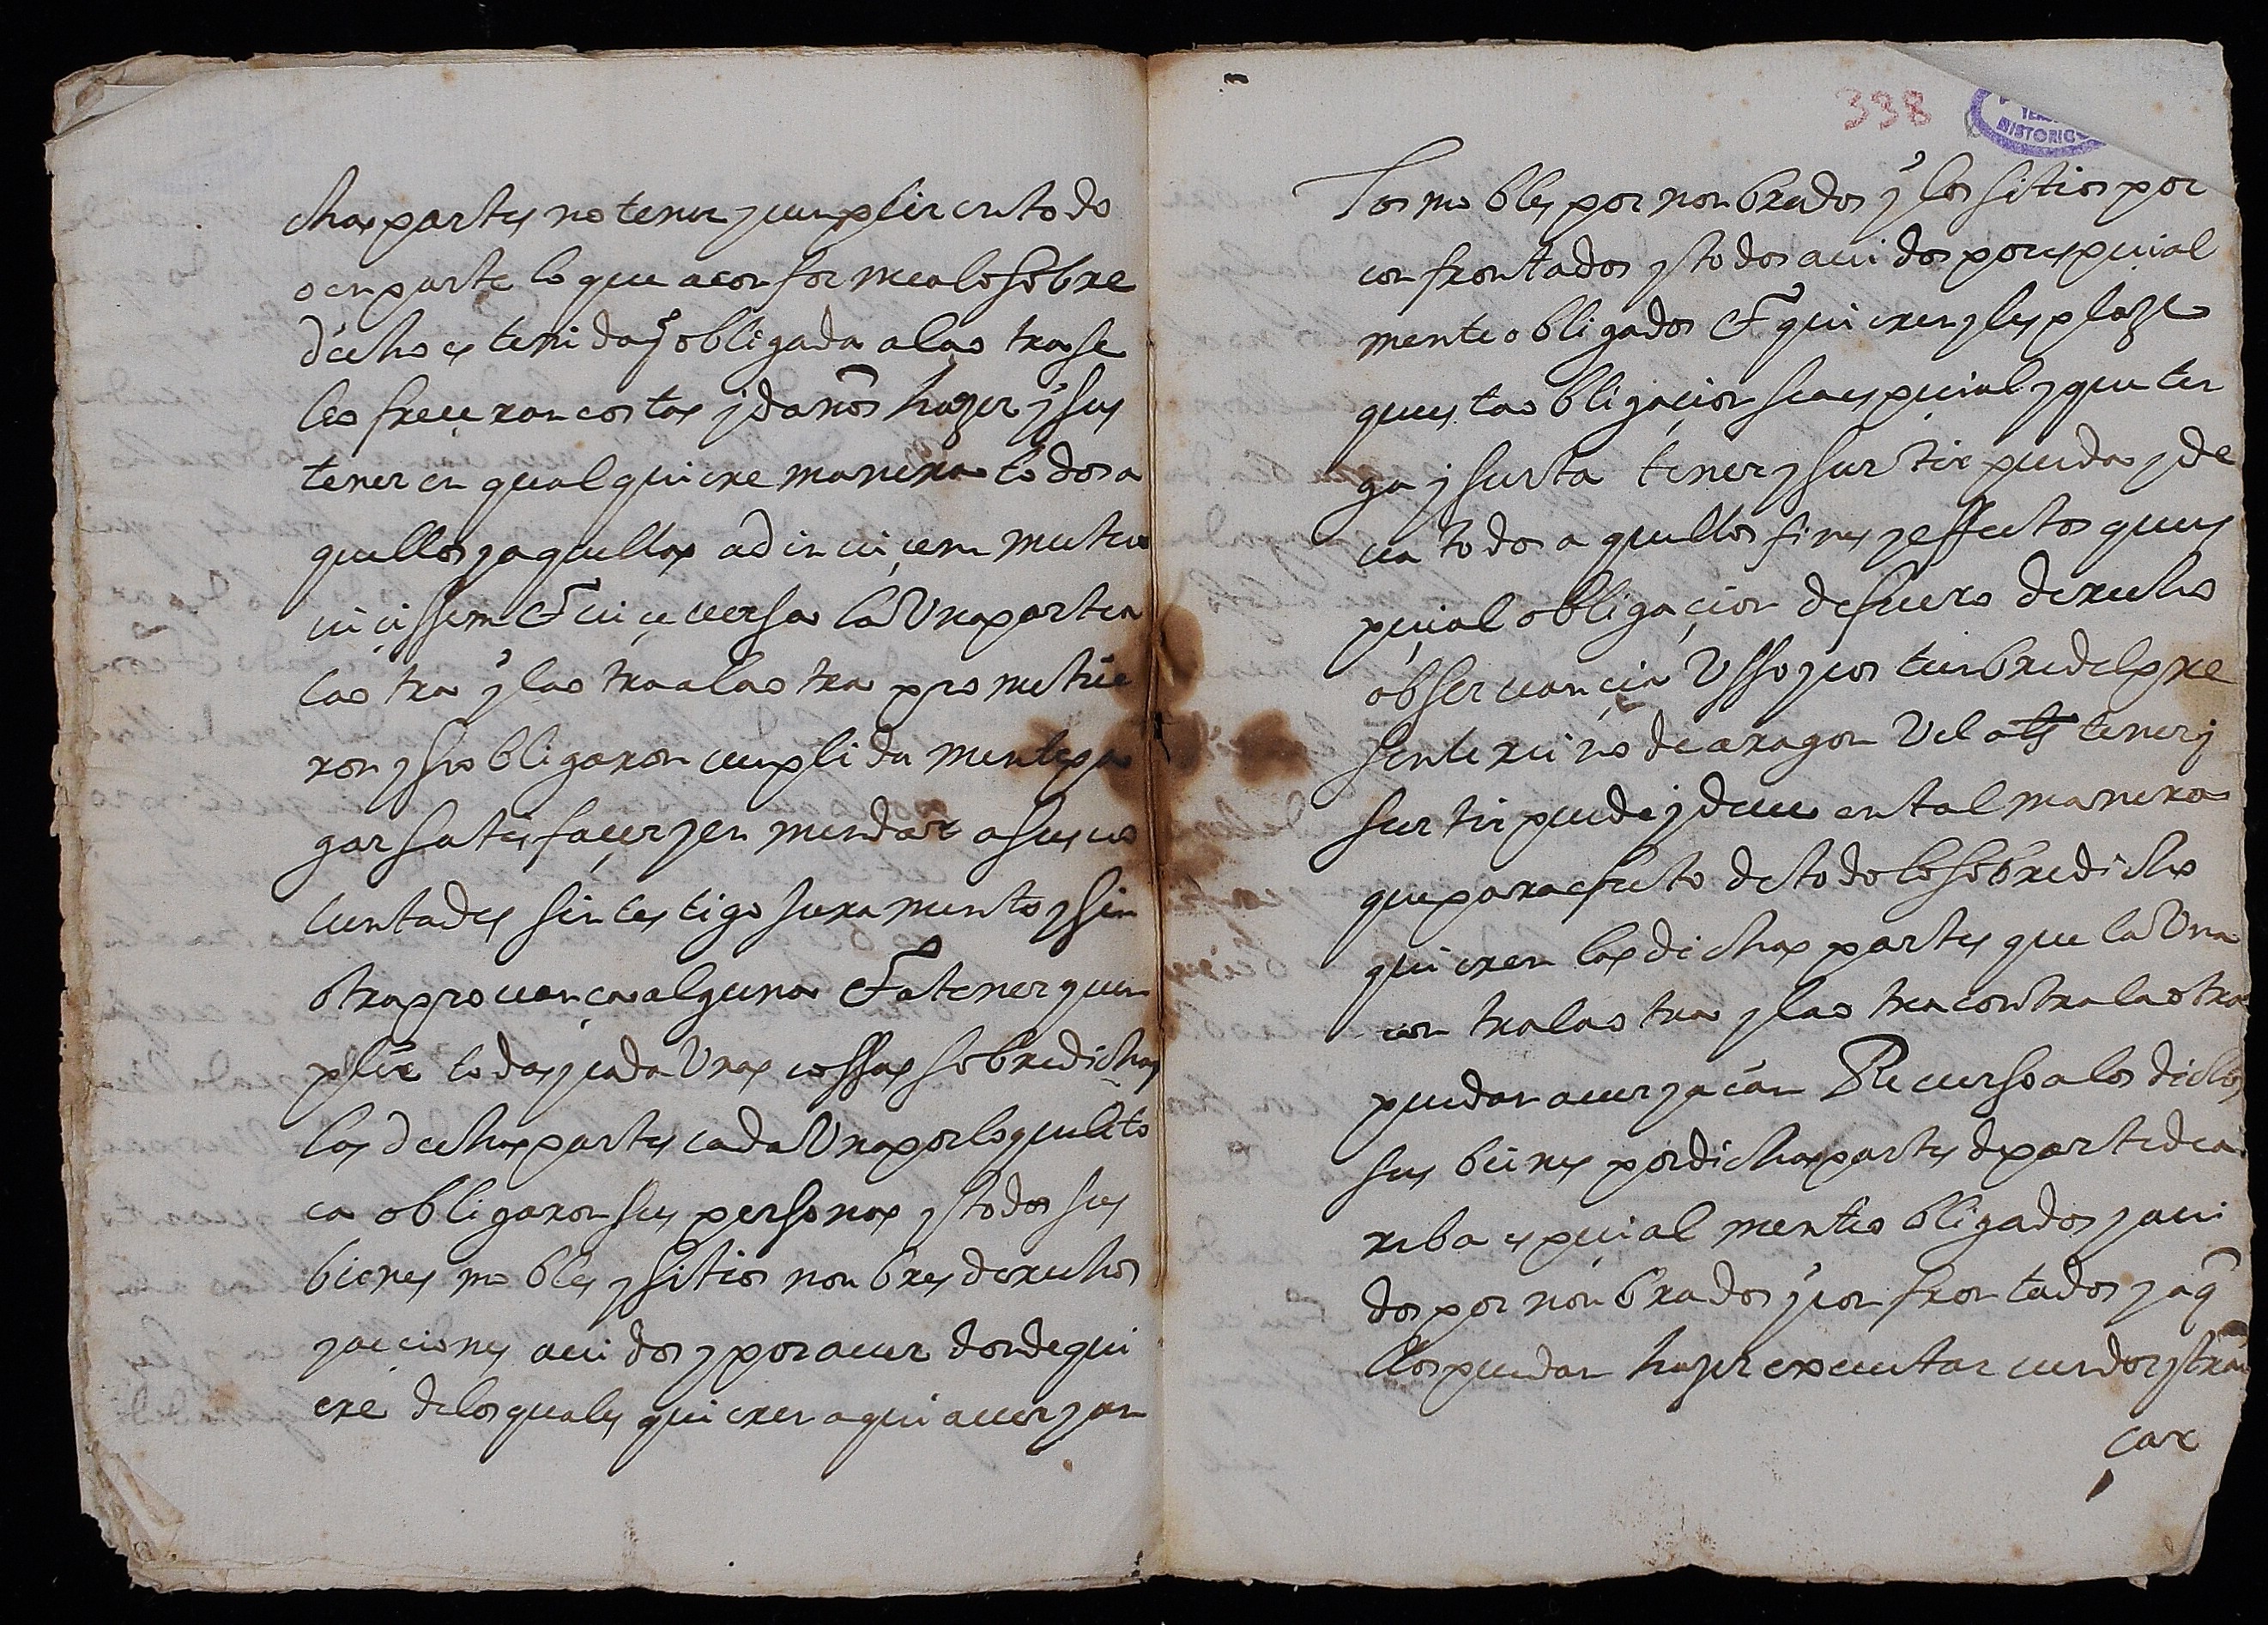 chas partes no tener y cunplir en todo
o en parte lo que a conforme a lo sobre
dicho es tenida y obligada a la otra se
les freçeran costas y daños hazer y sus
tener en qualquiere manera todos a
quellos y aquellas ad inuiçem mutua
uiçissim Et uiçe uersa la Vna parte a
la otra y la otra a la otra prometie
ron y se obligaron cunplidamente pa
gar satisfaçer y enmendar a sus uo
luntades sin testigo juramento y sin
otra prouança alguna Et a tener y cun
plir todas y cada Vnas cossas sobredichas
las dichas partes cada Vna por lo que le to
ca obligaron sus personas y todos sus
bienes mobles y sitios nonbres derechos
y acciones auidos y por auer donde qui
ere de los quales quieren aqui auer y an
los mobles por nonbrados y los sitios por
confrontados y todos auidos por espeçial
mente obligados Et quieren y les plaze
questa obligaçion sea espeçial y que ten
ga y surta tener y surtir pueda y de
ua todos aquellos fines y effectos que es
peçial obligaçion de fuero derecho
obseruançia Vsso y costunbre del pre
sente reino de aragon Vel als tener y
surtir puede y deue en tal manera
que para efecto de todo lo sobredicho
quieren las dichas partes que la Vna
contra la otra y la otra contra la otra
puedan auer y ayan Recurso a los dichos
sus bienes por dichas partes de parte de a
riba espeçialmente obligados y aui
dos por nonbrados y confrontados y aq̃
llos puedan hazer executar uender y tran
çar
398
HISTORICO